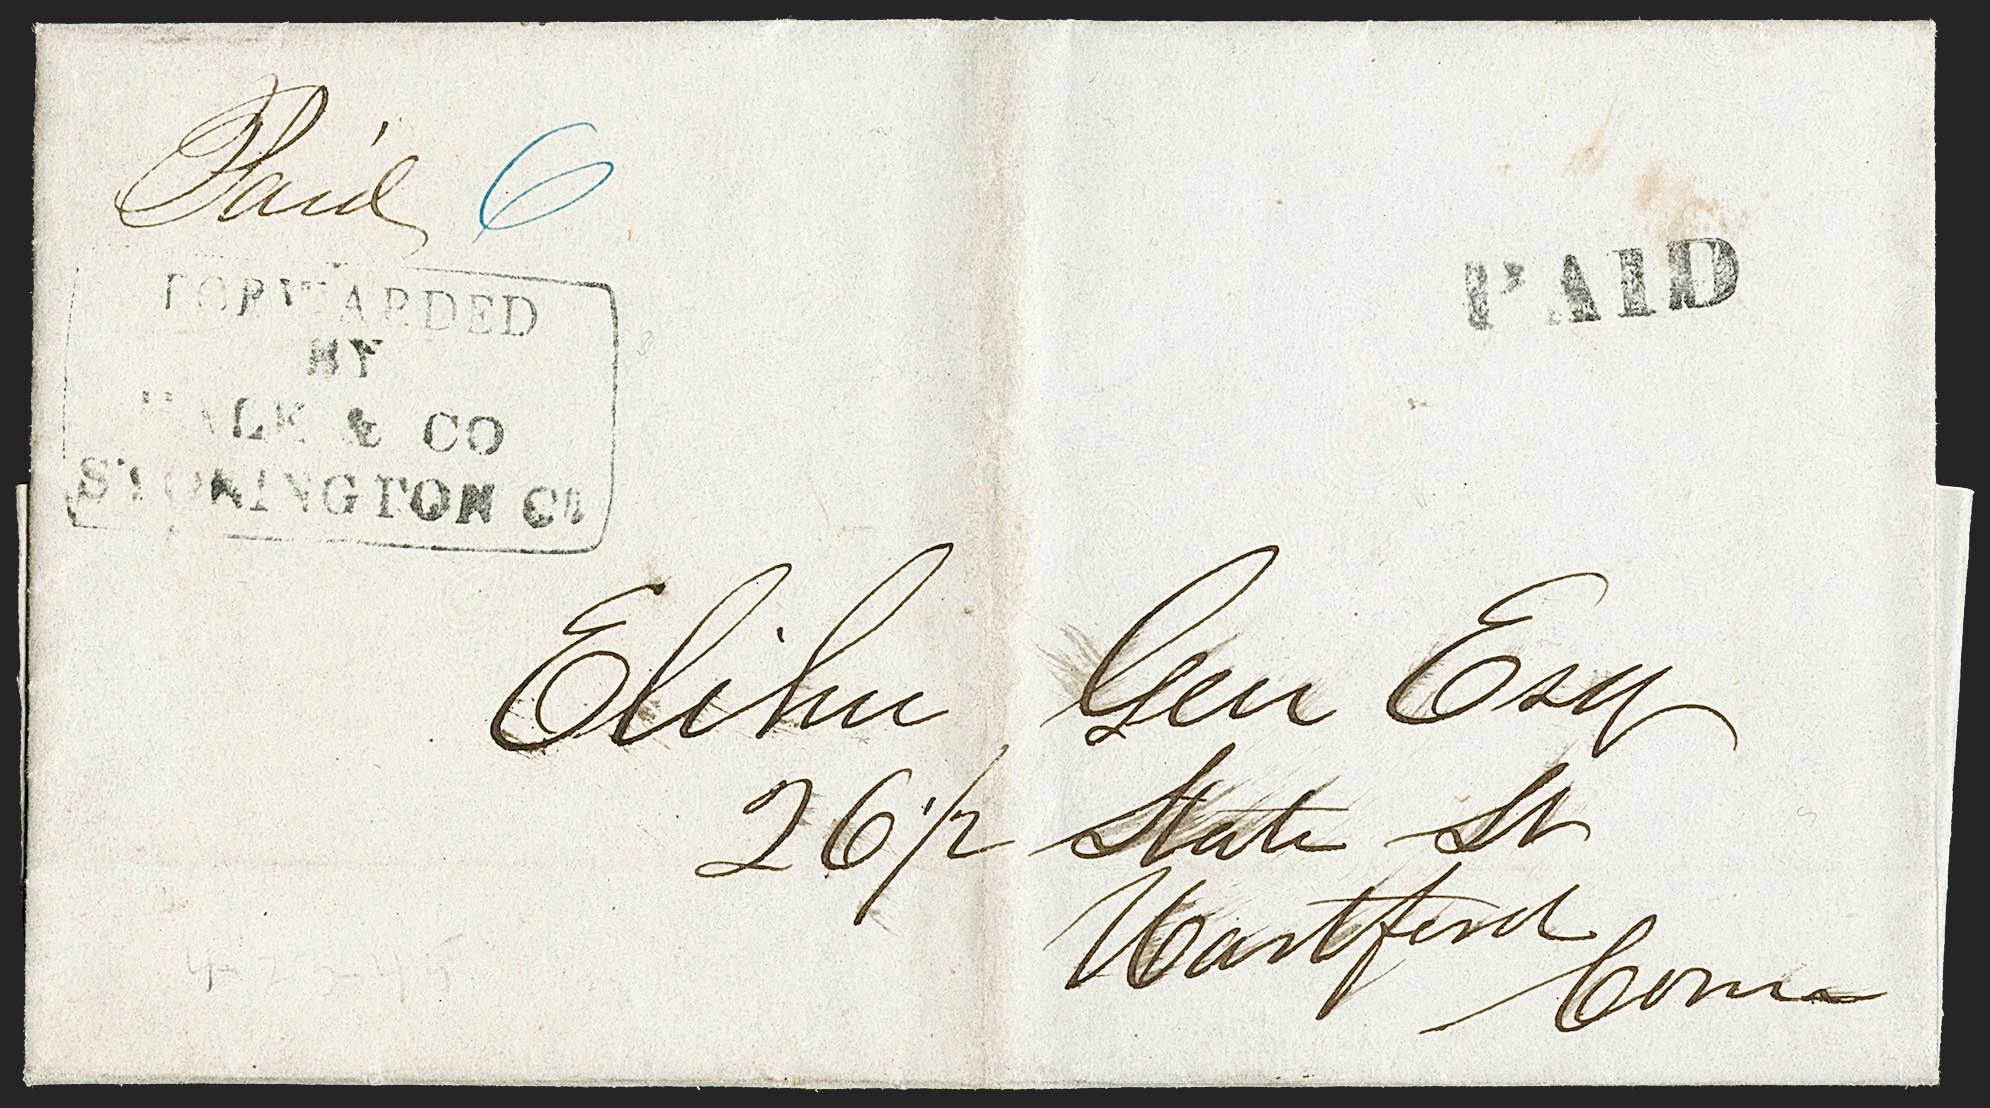 Paid 6
FORWARDED
BY
HALE & CO
STONINGTON Ct
PAID
Elihu Geer Esq
26 1/2 State St
Hartford
Conn